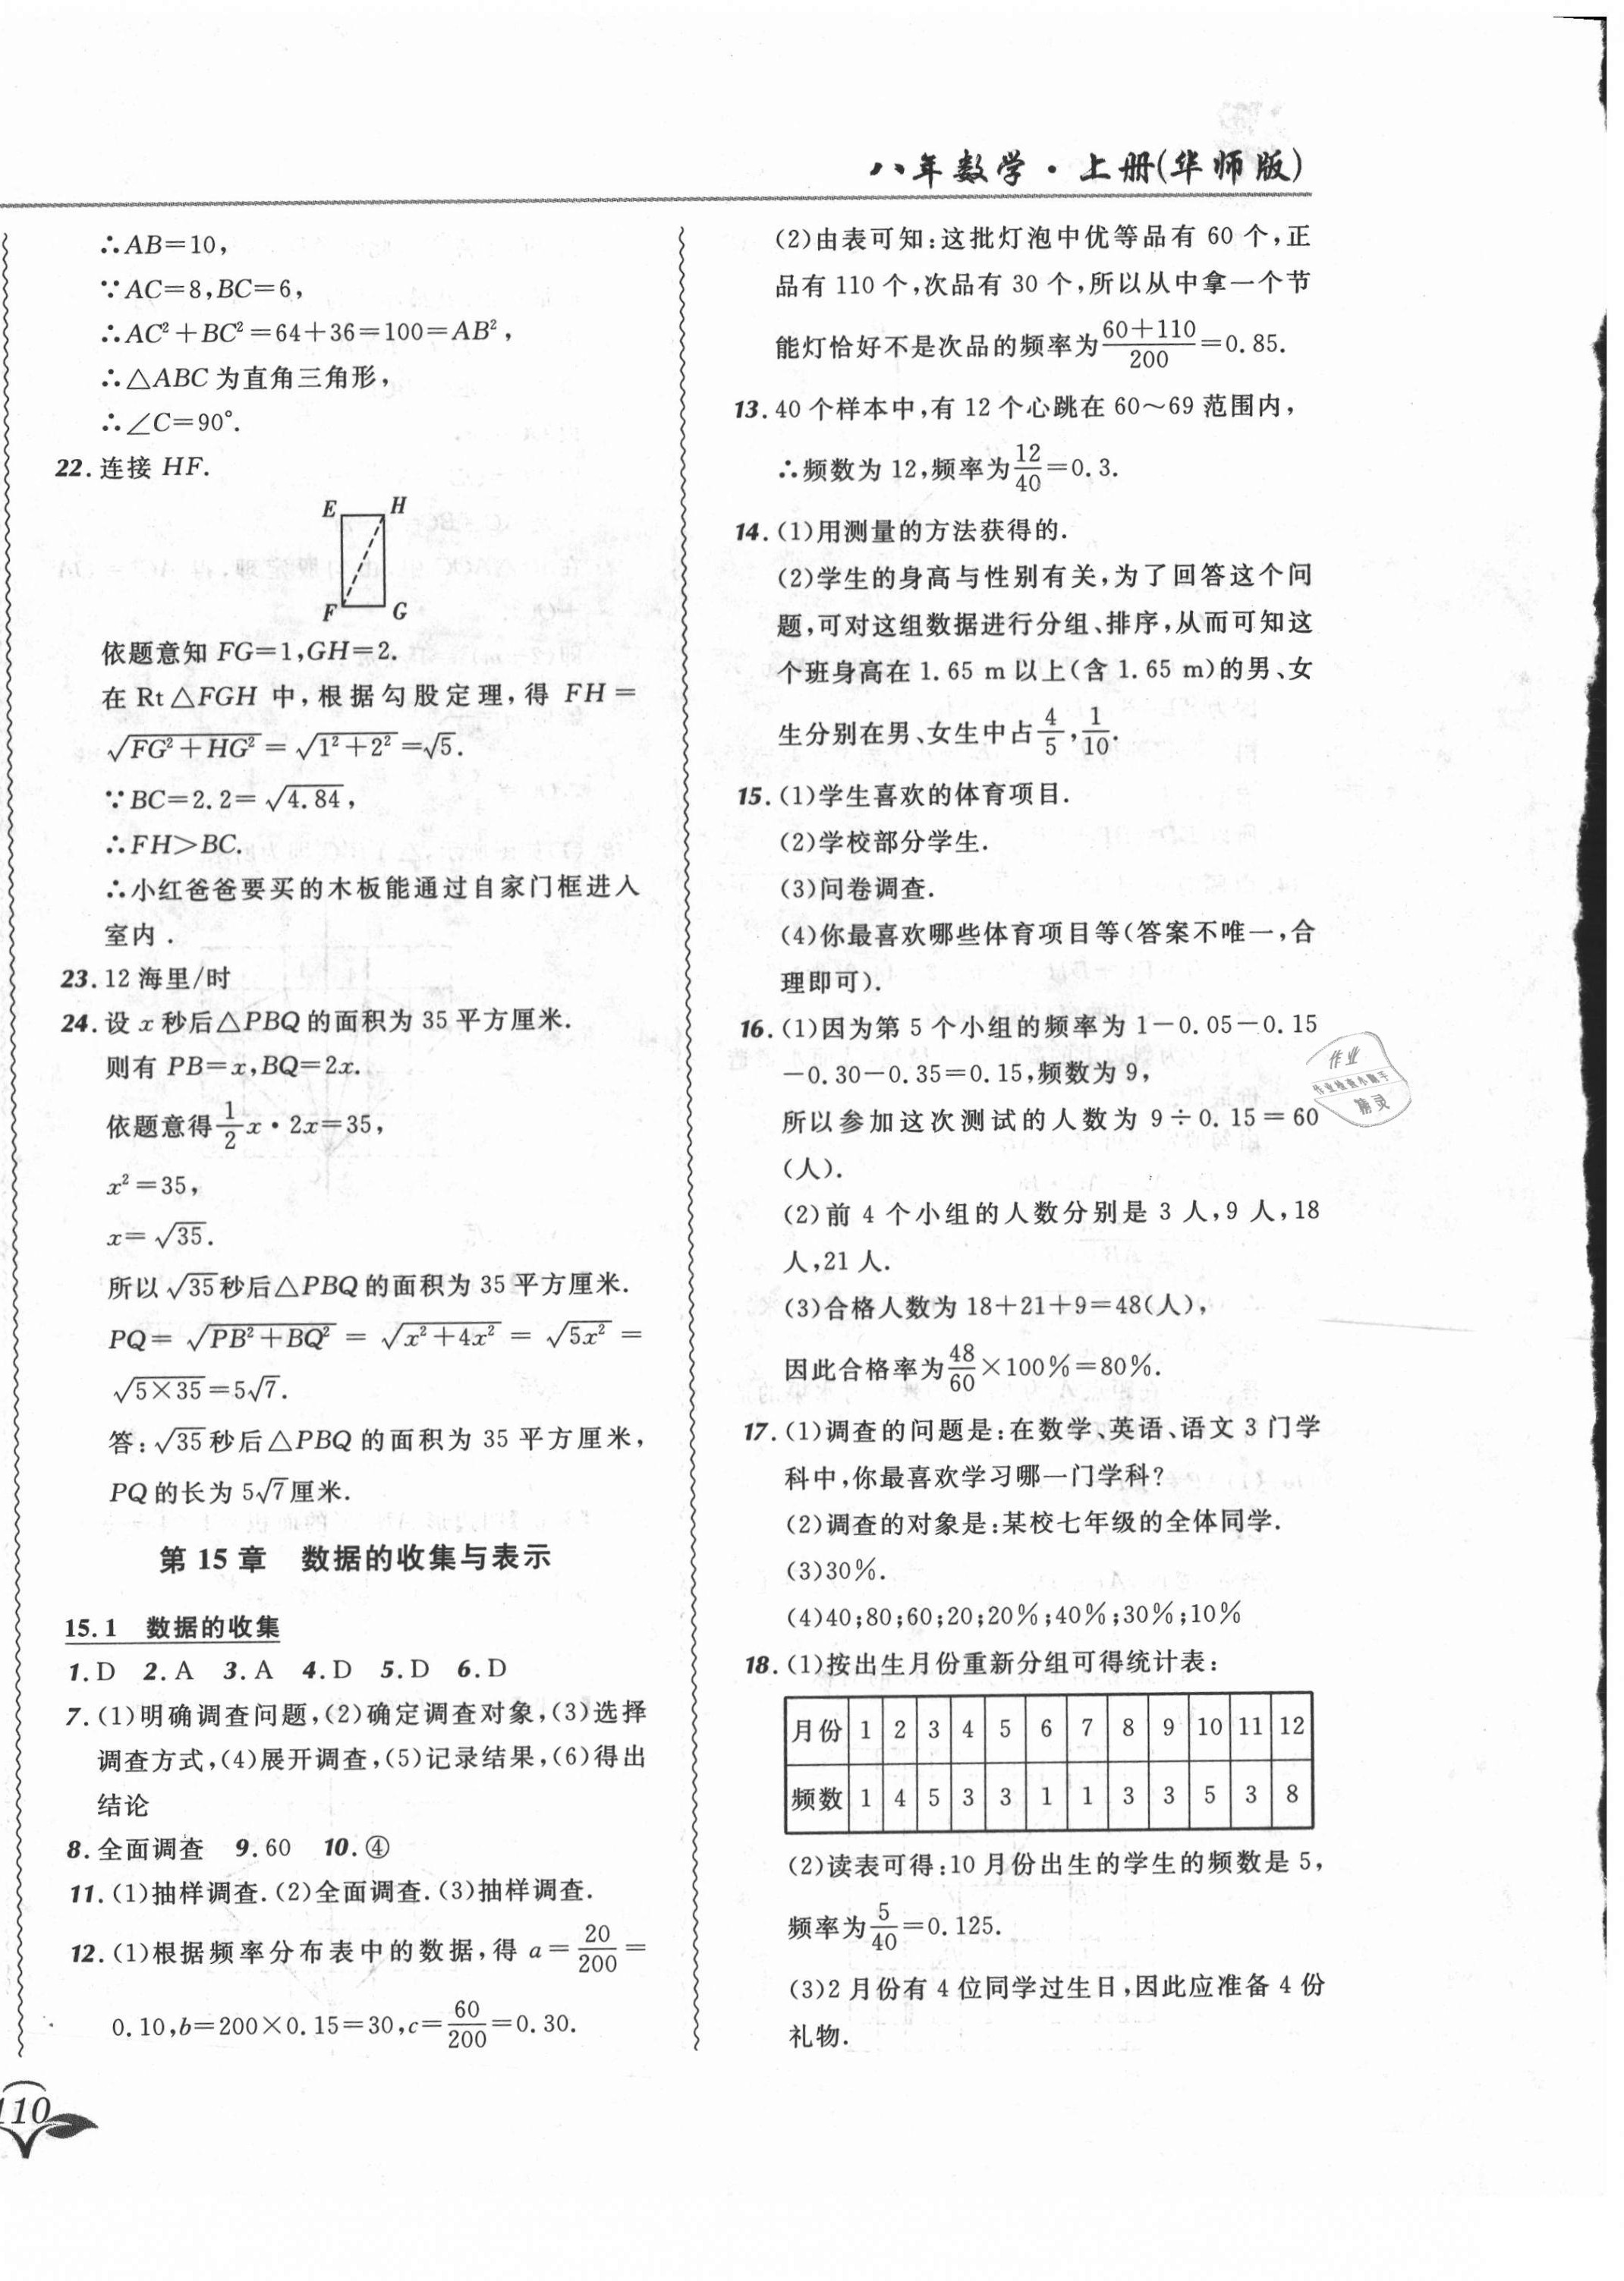 八年数学·上册(华师版)
∴AB=10,
∵AC=8,BC=6,
∴AC²+BC²=64+36=100=AB²,
∴△ABC 为直角三角形,
∴∠C=90°.
22.连接 HF.
E H
F G
依题意知 FG=1,GH=2.
在 Rt△FGH 中,根据勾股定理,得 FH=
√(FG²+HG²)=√(1²+2²)=√5.
∵BC=2.2=√4.84,
∴FH>BC.
∴小红爸爸要买的木板能通过自家门框进入
室内.
23.12 海里/时
24.设 x 秒后△PBQ 的面积为 35 平方厘米.
则有 PB=x,BQ=2x.
依题意得 1/2 x·2x=35,
x²=35,
x=√35.
所以√35秒后△PBQ 的面积为 35 平方厘米.
PQ=√(PB²+BQ²)=√(x²+4x²)=√(5x²)=
√(5×35)=5√7.
答:√35秒后△PBQ 的面积为 35 平方厘米,
PQ 的长为 5√7厘米.
第 15 章 数据的收集与表示
15.1 数据的收集
1.D 2.A 3.A 4.D 5.D 6.D
7.(1)明确调查问题,(2)确定调查对象,(3)选择
调查方式,(4)展开调查,(5)记录结果,(6)得出
结论
8.全面调查 9.60 10.④
11.(1)抽样调查.(2)全面调查.(3)抽样调查.
12.(1)根据频率分布表中的数据,得 a=20/200=
0.10,b=200×0.15=30,c=60/200=0.30.
110
(2)由表可知:这批灯泡中优等品有 60 个,正
品有 110 个,次品有 30 个,所以从中拿一个节
能灯恰好不是次品的频率为(60+110)/200=0.85.
13.40 个样本中,有 12 个心跳在 60～69 范围内,
∴频数为 12,频率为12/40=0.3.
14.(1)用测量的方法获得的.
(2)学生的身高与性别有关,为了回答这个问
题,可对这组数据进行分组、排序,从而可知这
个班身高在 1.65 m 以上(含 1.65 m)的男、女
生分别在男、女生中占4/5,1/10.
15.(1)学生喜欢的体育项目.
(2)学校部分学生.
(3)问卷调查.
(4)你最喜欢哪些体育项目等(答案不唯一,合
理即可).
16.(1)因为第 5 个小组的频率为 1-0.05-0.15
-0.30-0.35=0.15,频数为 9,
所以参加这次测试的人数为 9÷0.15=60
(人).
(2)前 4 个小组的人数分别是 3 人,9 人,18
人,21 人.
(3)合格人数为 18+21+9=48(人),
因此合格率为48/60×100%=80%.
17.(1)调查的问题是:在数学、英语、语文 3 门学
科中,你最喜欢学习哪一门学科?
(2)调查的对象是:某校七年级的全体同学.
(3)30%.
(4)40;80;60;20;20%;40%;30%;10%
18.(1)按出生月份重新分组可得统计表:
月份 1 2 3 4 5 6 7 8 9 10 11 12
频数 1 4 5 3 3 1 1 3 3 5 3 8
(2)读表可得:10 月份出生的学生的频数是 5,
频率为5/40=0.125.
(3)2 月份有 4 位同学过生日,因此应准备 4 份
礼物.
作业
作业检查小助手
精灵